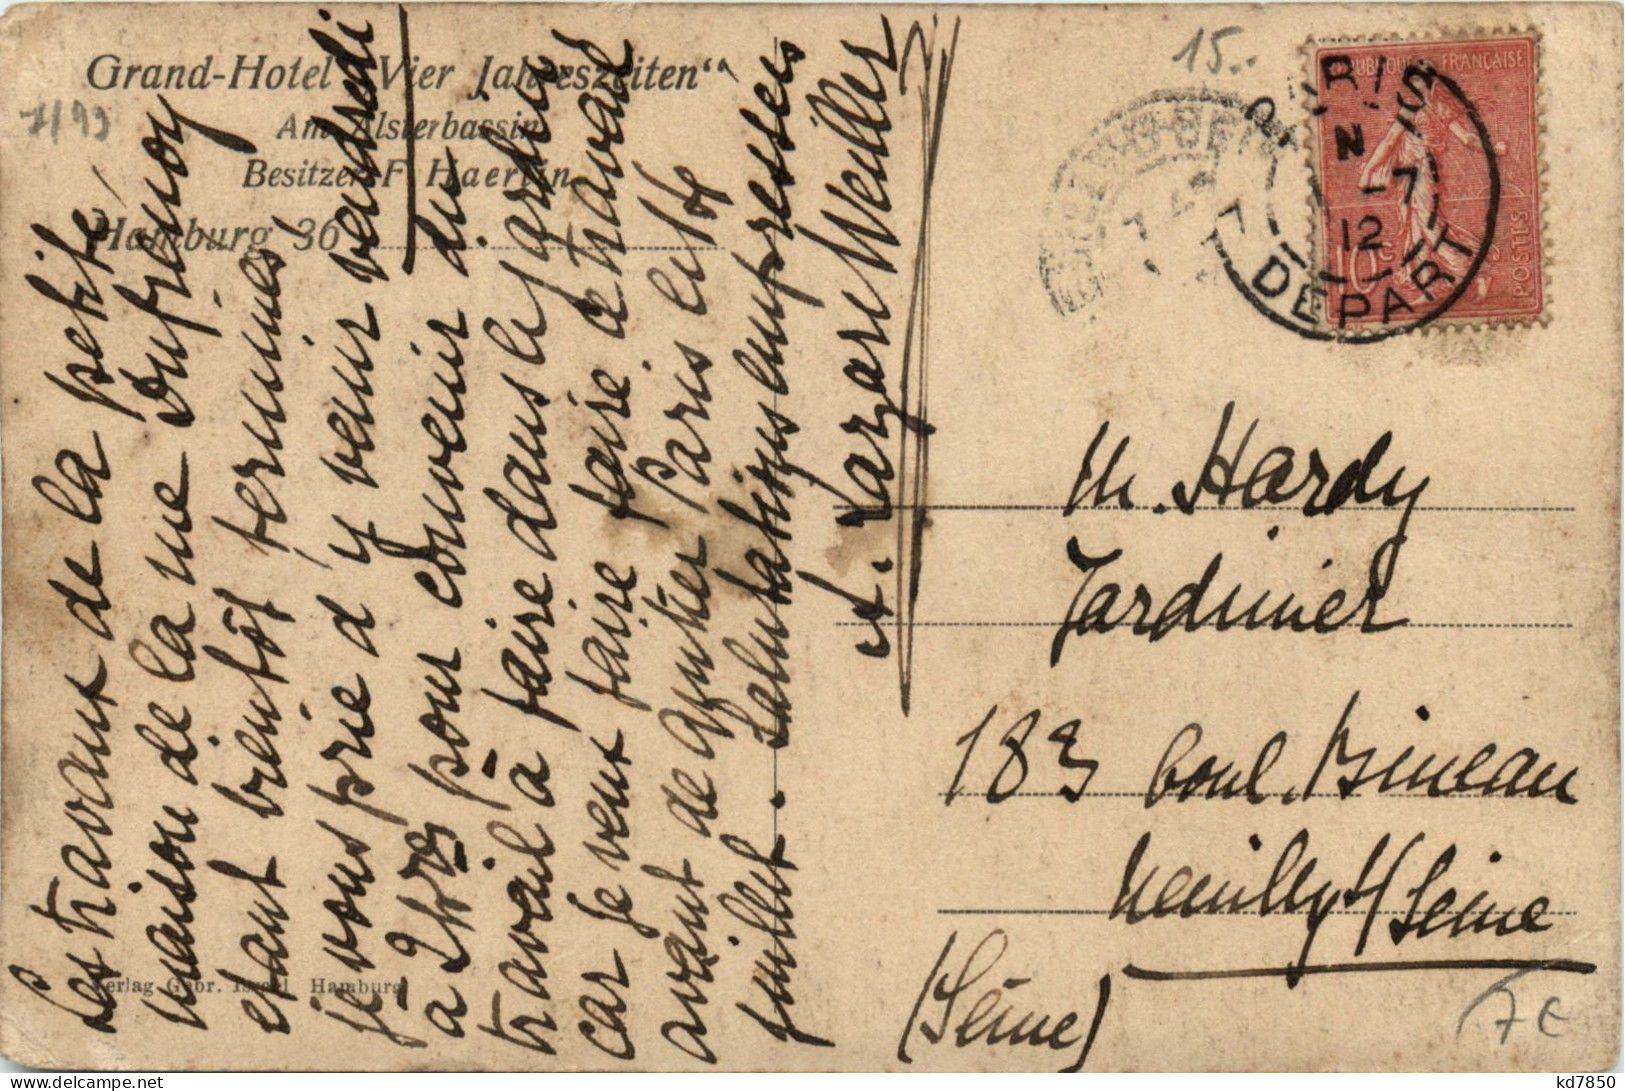 Grand-Hotel „Vier Jahreszeiten“
Am Alsterbassin
Besitzer F. Haerlin
Hamburg 36
7/99
15..
RÉPUBLIQUE FRANÇAISE
10c
POSTES
PARIS
N
-7
12
DÉPART
Les travaux de la petite
maison de la rue Dufrenoy
étant bientôt terminés
je vous prie d'y venir vendredi
à 2hrs pour convenir du
travail à faire dans le jardin
car je veux faire faire ce travail
avant de quitter Paris le
juillet. Salutations empressées
A. Lazare Weiller
M. Hardy
Jardinier
183 boul. Bineau
Neuilly s/ Seine
(Seine)
Verlag Gebr. Israel Hamburg
7 €
kd7850